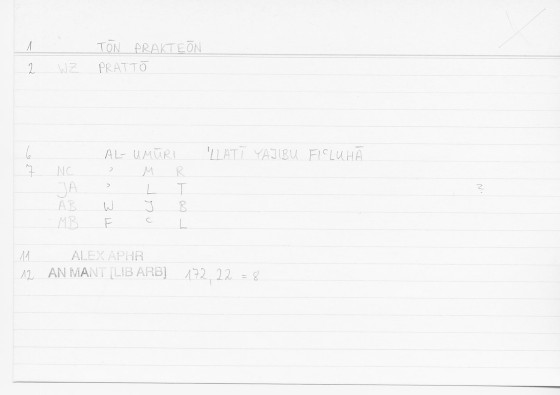 1 TŌN PRAKTEŌN
2 WZ PRATTŌ
6 AL-UMŪRI 'LLATĪ YAJIBU FIꜤLUHĀ
7 NC ʾ M R
JA ʾ L T ?
AB W J B
MB F Ꜥ L
11 ALEX APHR
12 AN MANT [LIB ARB] 172,22 = 8